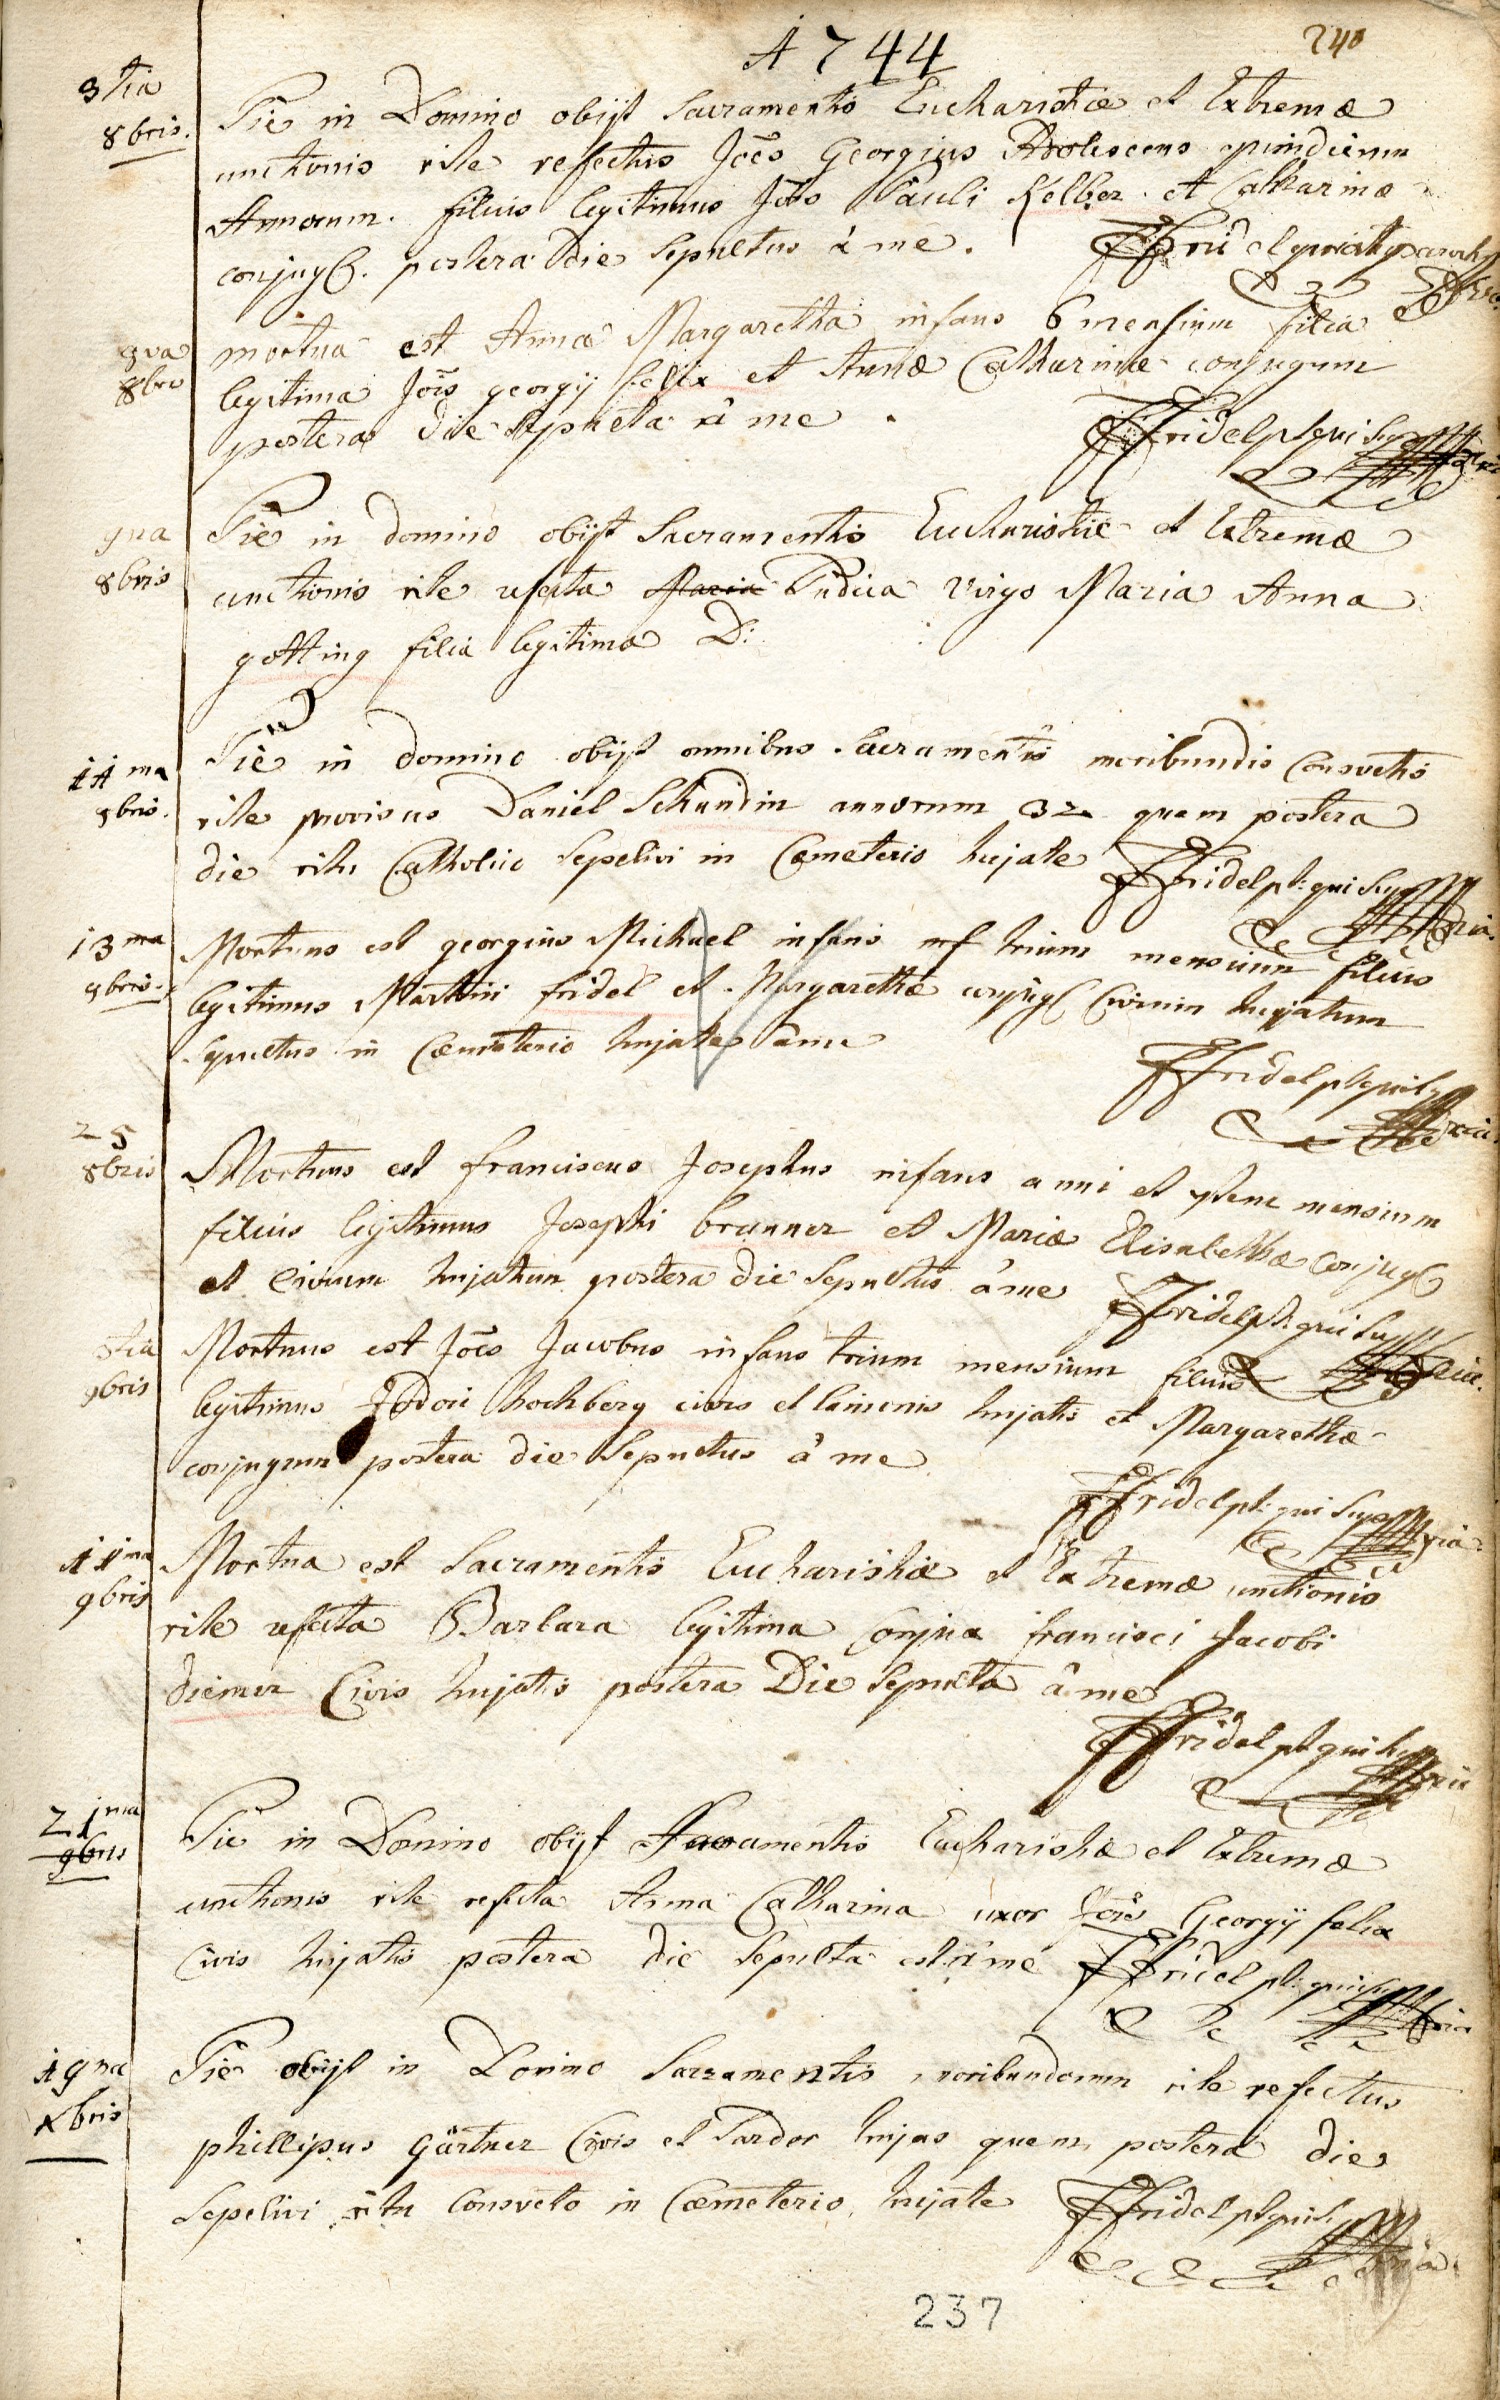 1744
240
3tia
8bris.
Pie in Domino obijt Sacramentis Eucharistiæ et Extremæ
unctionis rite refectus Joẽs Georgius Adolescens quindicim
Annorum. filius legitimus Jois Pauli Kelber et Catharinæ
conjug. postera die Sepultus à me. FFridel
8bris
mortua est Anna Margaretha infans 6 mensium filia
legitima Jois georgij felix et Annæ Catharinæ conjugum
postera die sepulta à me. FFridel pl: qui supra
9na
8bris
Pie in domino obijt Sacramentis Eucharistiæ et Extremæ
unctionis rite refecta Maria Pudica Virgo Maria Anna
gotting filia legitima D:
11ma
8bris.
Pie in domino obijt omnibus Sacramentis moribundis Consvetis
rite provisus Daniel Schundin annorum 32 quem postera
die ritu Catholico Sepelivi in Cæmeterio hujate FFridel pl: qui supra
13ma
9bris.
Mortuus est georgius Michael infans trium mensium filius
legitimus Martini fridel et Margarethæ conjug Civium hujatum
sepultus in Cæmeterio hujate à me
FFridel pl qui
25
8bris
Mortuus est franciscus Josephus infans anni et septem mensium
filius legitimus Josephi brunner et Mariæ Elisabethæ Conjug
et Civium hujatum postera die Sepultus à me FFridel pl: qui sup
3tia
9bris
Mortuus est Joẽs Jacobus infans trium mensium filius
legitimus Jodoci hochberg civis et lanionis hujatis et Margarethæ
conjugum postera die Sepultus à me
FFridel pl: qui supra
11ma
9bris
Mortua est Sacramentis Eucharistiæ et Extremæ unctionis
rite refecta Barbara legitima Conjux francisci Jacobi
diemer Civis hujatis postera Die Sepulta à me
FFridel pl qui
21ma
9bris
Pie in Domino obijt Sacramentis Eucharistiæ et Extremæ
unctionis rite refecta Anna Catharina uxor Jois Georgij felix
Civis hujatis postera die Sepulta est à me FFridel pl: qui
19na
xbris
Pie obijt in Domino Sacramentis moribundorum rite refectus
phillipus gärtner Civis et Sardor hujas quem postera die
Sepelivi ritu Consveto in Cæmeterio hujate FFridel pl qui
237